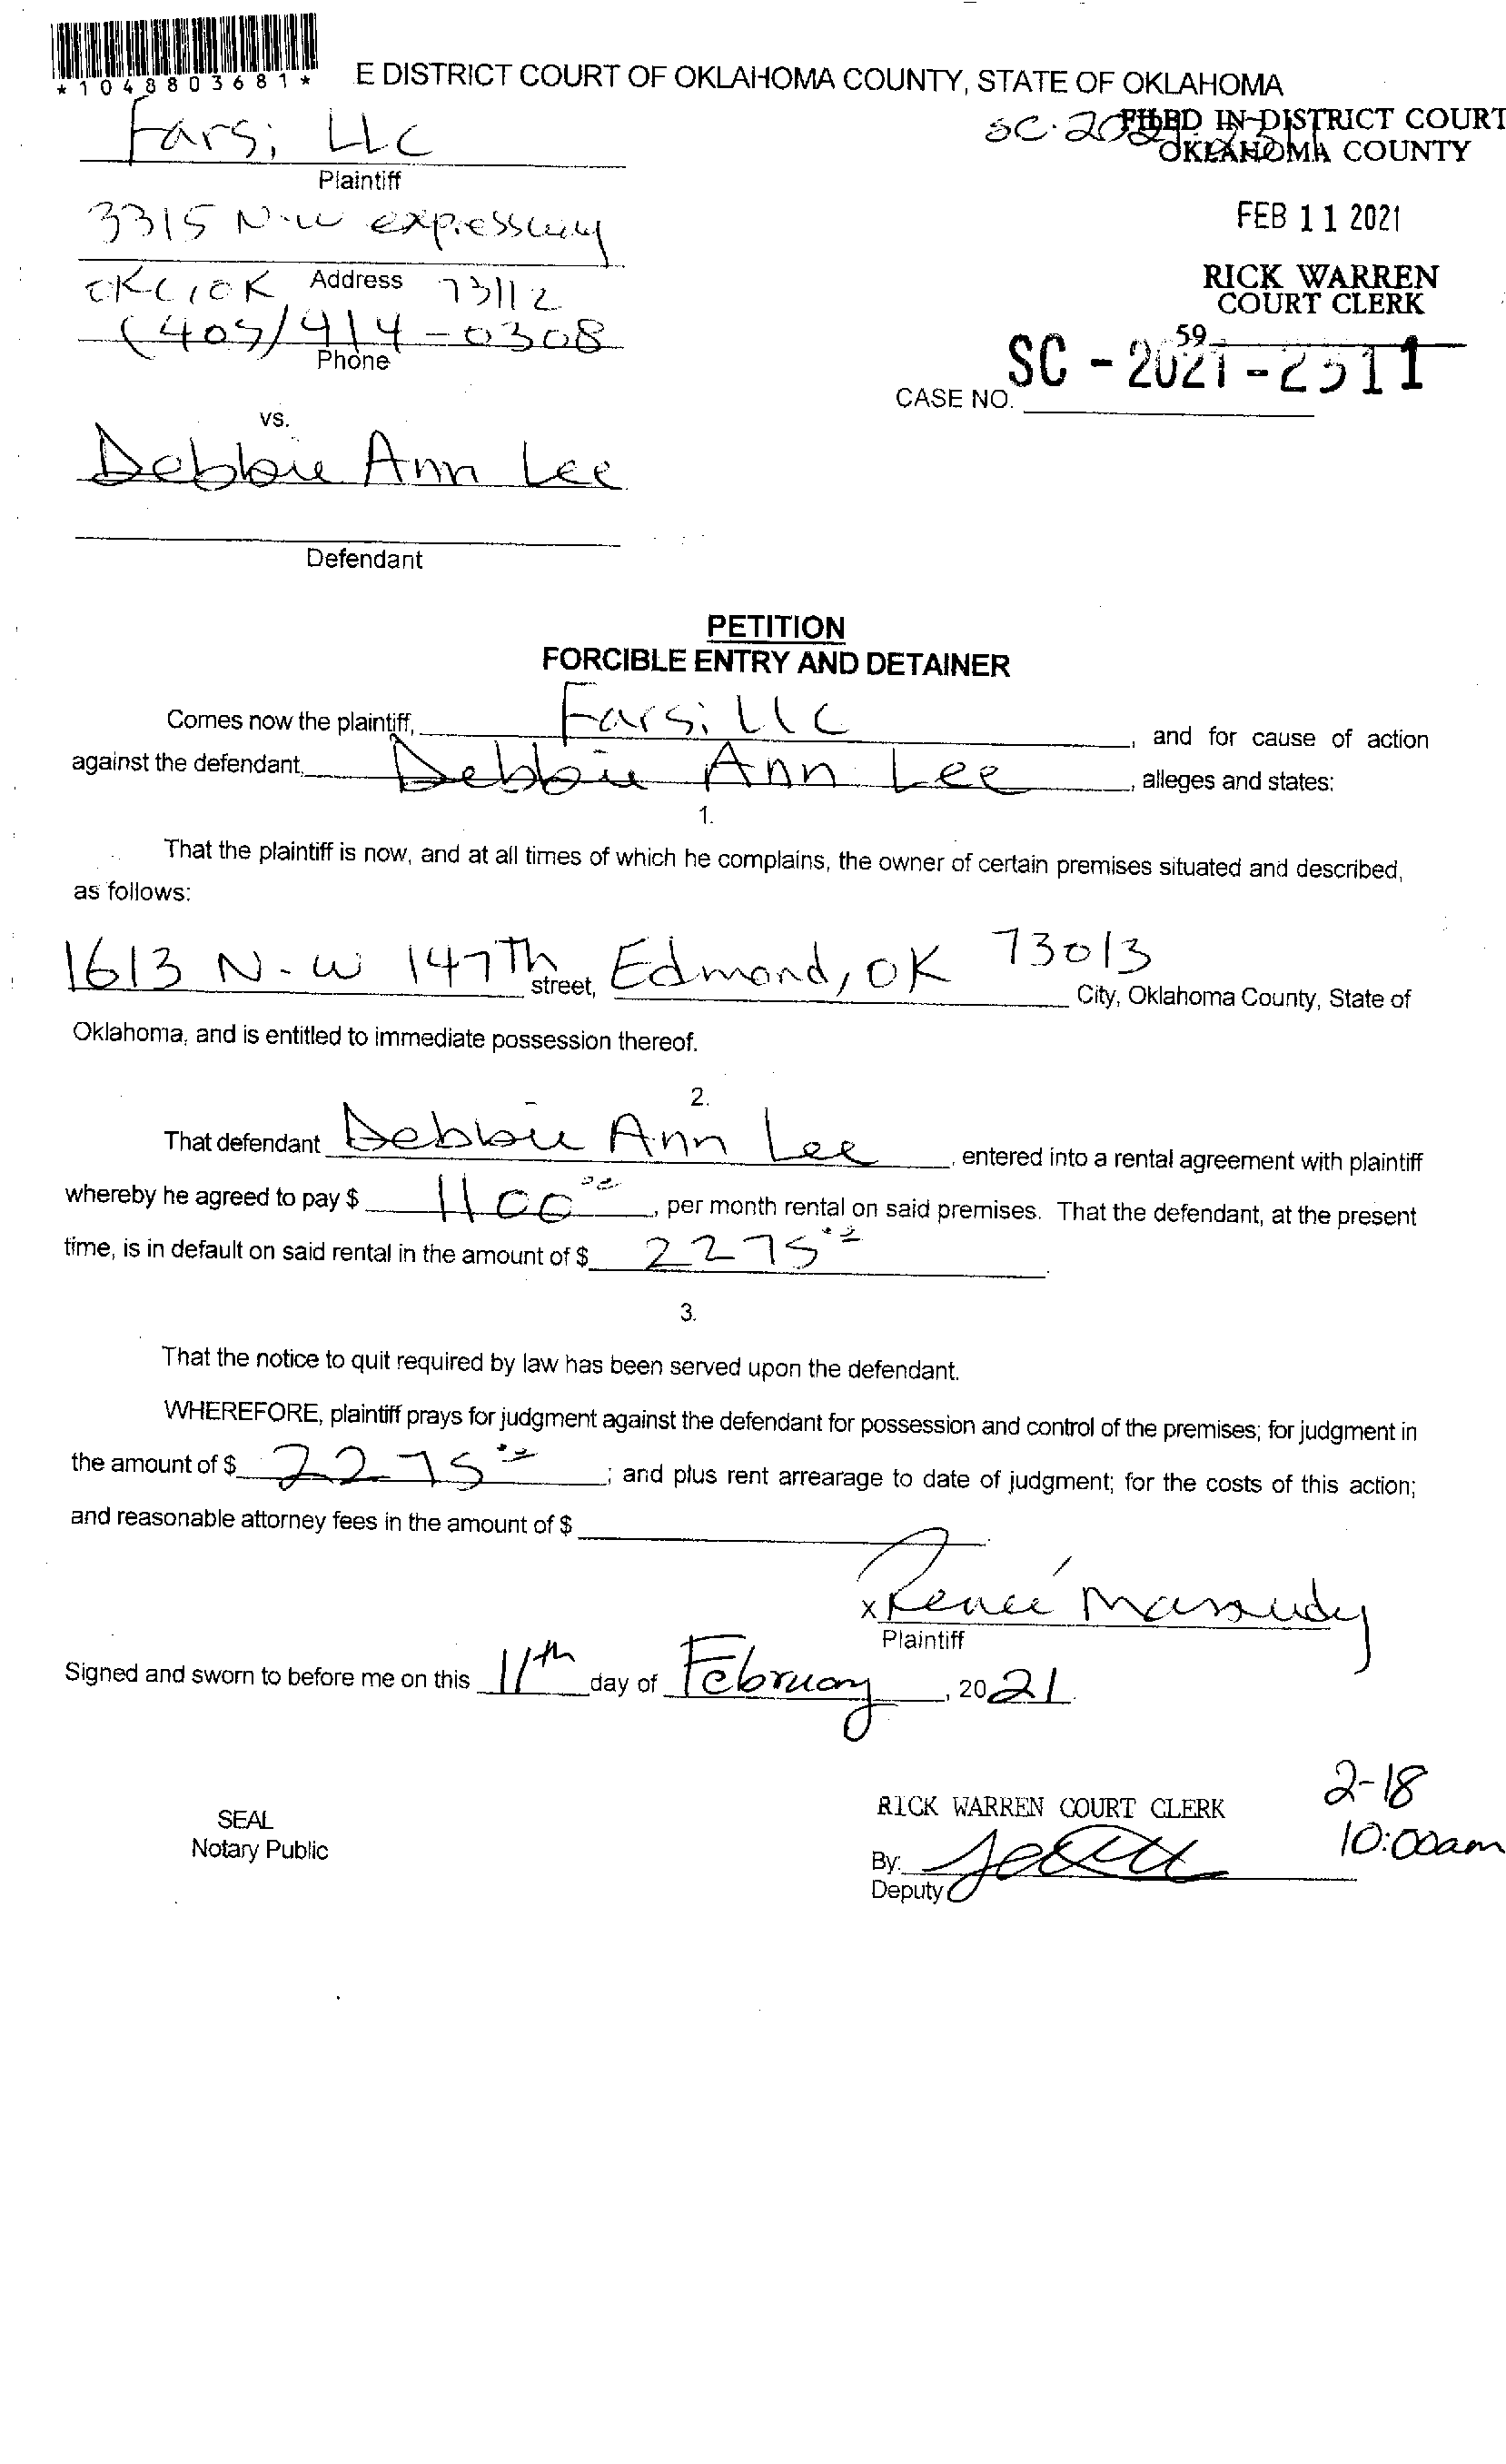 *1048803681*
E DISTRICT COURT OF OKLAHOMA COUNTY, STATE OF OKLAHOMA
Farsi LLC
Plaintiff
SC-20
FILED IN DISTRICT COURT
OKLAHOMA COUNTY
3315 N.W expressway
Address
OKC, OK 73112
FEB 11 2021
RICK WARREN
COURT CLERK
(405) 414-0308
Phone
59
SC - 2021 - 2511
CASE NO.
vs.
Debbie Ann Lee
Defendant
PETITION
FORCIBLE ENTRY AND DETAINER
Comes now the plaintiff, Farsi LLC, and for cause of action
against the defendant, Debbie Ann Lee, alleges and states:
1.
That the plaintiff is now, and at all times of which he complains, the owner of certain premises situated and described,
as follows:
1613 N.W 147Th street, Edmond, OK 73013 City, Oklahoma County, State of
Oklahoma, and is entitled to immediate possession thereof.
2.
That defendant Debbie Ann Lee, entered into a rental agreement with plaintiff
whereby he agreed to pay $ 1100.00, per month rental on said premises. That the defendant, at the present
time, is in default on said rental in the amount of $ 2275.00.
3.
That the notice to quit required by law has been served upon the defendant.
WHEREFORE, plaintiff prays for judgment against the defendant for possession and control of the premises; for judgment in
the amount of $ 2275.00; and plus rent arrearage to date of judgment; for the costs of this action;
and reasonable attorney fees in the amount of $
x Reneé Massoudy
Plaintiff
Signed and sworn to before me on this 11th day of February, 2021.
2-18
10:00am
SEAL
Notary Public
RICK WARREN COURT CLERK
By:
Deputy